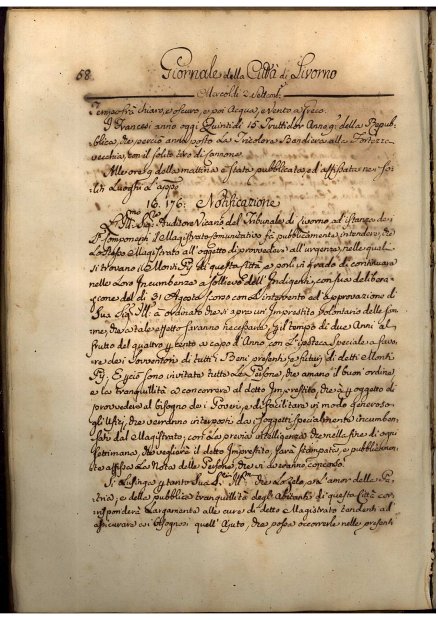 58
Giornale della Città di Livorno
Mercoldì 2 Settemb.
Tempo frà chiaro, e oscuro, e poi Acqua, e vento a fresco.
I Francesi anno oggi Quintidì 15 Fruttidor Anno 9 della Repub-
blica, che perciò anno posto La Tricolora Bandiera alla Fortezza
vecchia, con il solito tiro di Cannone.
Alle ore 9 della mattina è stata pubblicata, ed affissata nei so-
liti Luoghi L'appo
N. 176: Notificazione
L'Ill.mo Sig.re Auditore Vicario del Tribunale di Livorno ad istanza dei
SS. Componenti il Magistrato Comunitativo fà pubblicamente intendere, che
Lo stesso Magistrato all'oggetto di provvedere all'urgenza, nelle quali
si trovano i Monti Pij di questa Città e porli in grado di continuare
nelle Loro Incumbenze a sollievo dell'Indigenti, con sua delibera-
zione del dì 31 Agosto scorso con L'intervento ed approvazione di
Sua Sig.ria Ill.ma à ordinato che si apra un Imprestito volontario delle som-
me, che a tale effetto saranno necessarie, per il tempo di due Anni al
frutto del quattro per cento a capo d'Anno, con L'ipoteca speciale a favo-
re dei Sovventori di tutti i Beni presenti, e futuri di detti Monti
Pij. E perciò sono invitate tutte Le Persone, che amano il buon ordine,
e la tranquillità a concorrere al detto Imprestito, che à per oggetto di
provvedere al bisogno dei Poveri, e di facilitare in modo generoso
gli Ufizi, che verranno interposti da Soggetti specialmente incumben-
zati dal Magistrato; con La previa intelligenza che nella fine di ogni
settimana, che veglierà il detto Imprestito, sarà stampata, e pubblicamen-
te affissa La Nota delle Persone, che vi averanno concorso.
Si Lusinga per tanto Sua Sig.ria Ill.ma che Lo zelo, e L'amor della Pa-
tria, e della pubblica tranquillità degli Abitanti di questa Città cor-
risponderà Largamente alle cure di detto Magistrato tendenti ad
assicurare ai bisognosi quell'Ajuto, che possa occorrerli nelle presenti